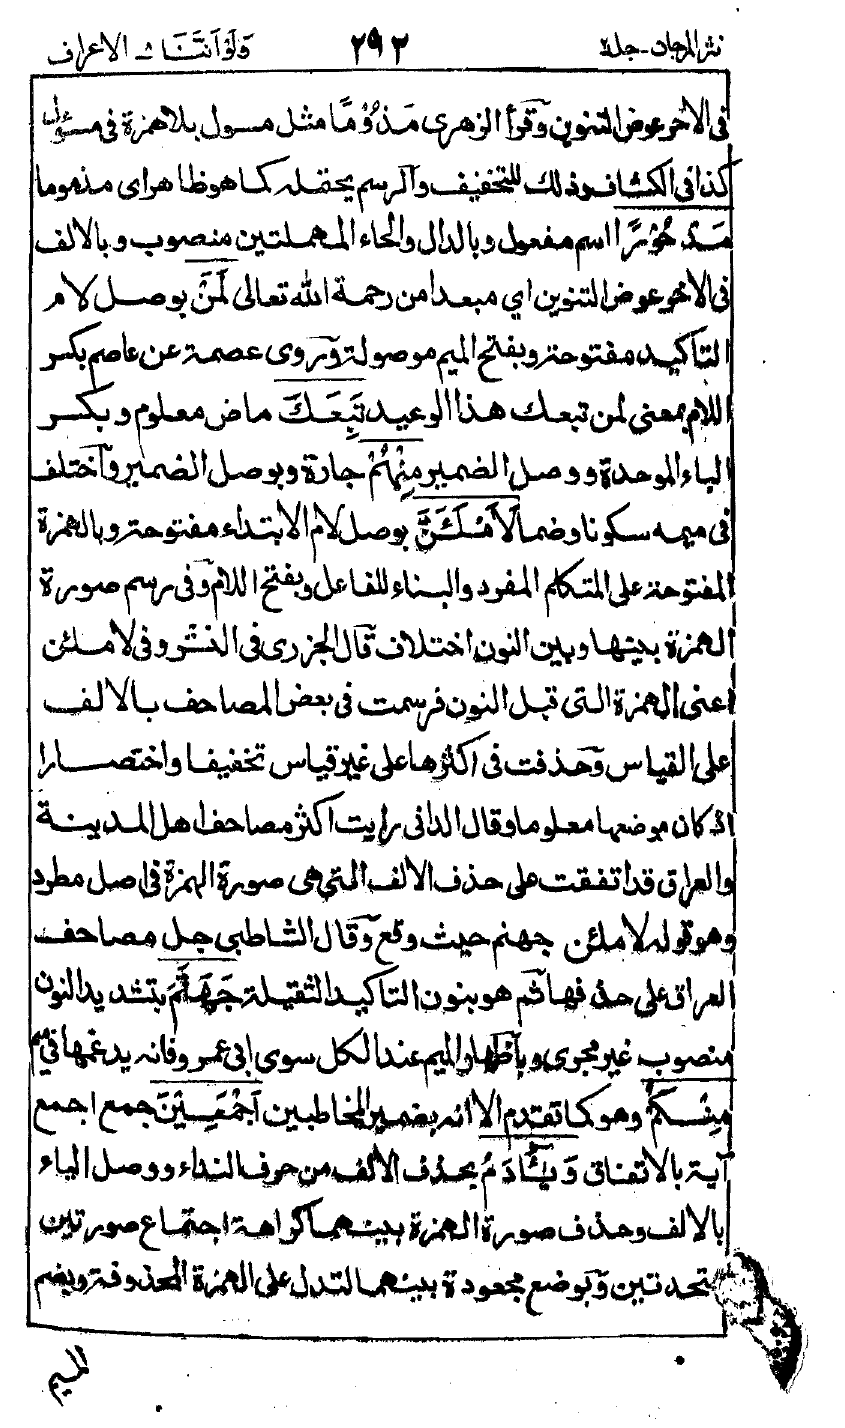 نثر المرجان - جلد ٢٩٢ وَلَوْ اَنَّنَا ٨ الاعراف
فى الاخر عوض التنوين وَقرأ الزهرى مَذُوْمًا مثل مسول بلا همزة فى مسئول
كذا فى الكشاف وذلك للتخفيف وَالرسم يحتمله كما هو ظاهر اى مذموما
مَدْحُوْرًا اسم مفعول وبالدال والحاء المهملتين منصوب وبالالف
فى الاخر عوض التنوين اى مبعدا من رحمة الله تعالى لَمَنْ بوصل لام
التاكيد مفتوحة وبفتح الميم موصولة وَروى عصمة عن عاصم بكسر
اللام بمعنى لمن تبعك هذا الوعيد تَبِعَكَ ماض معلوم وبكسر
الباء الموحدة ووصل الضمير مِنْهُمْ جارة وبوصل الضمير وَاختلف
فى ميمه سكونا وضما لَاَمْلَئَنَّ بوصل لام الابتداء مفتوحة وبالهمزة
المفتوحة على المتكلم المفرد والبناء للفاعل وبفتح اللام وَفى رسم صورة
الهمزة بينها وبين النون اختلاف قَال الجزرى فى النشر وفى لاملئن
اعنى الهمزة التى قبل النون فرسمت فى بعض المصاحف بالالف
على القياس وَحذفت فى اكثرها على غير قياس تخفيفا واختصارا
اذ كان موضعها معلوما وقال الدانى رايت اكثر مصاحف اهل المدينة
والعراق قد اتفقت على حذف الالف التى هى صورة الهمزة فى اصل مطرد
وهو قوله لاملئن جهنم حيث وقع وَقال الشاطبى جل مصاحف
العراق على حذفها ثم هو بنون التاكيد الثقيلة جَهَنَّمَ بتشديد النون
منصوب غير مجرى وباظهار الميم عند الكل سوى ابى عمرو فانه يدغمها فى ميم
مِنْكُمْ وهو كما تقدم الا انه بضمير المخاطبين اَجْمَعِيْنَ جمع اجمع
آية بالاتفاق وَيٰٓاٰدَمُ بحذف الالف من حرف النداء ووصل الياء
بالالف وحذف صورة الهمزة بينهما كراهة اجتماع صورتين
متحدتين وَبوضع مجعودة بينهما لتدل على الهمزة المحذوفة وبضم
الميم